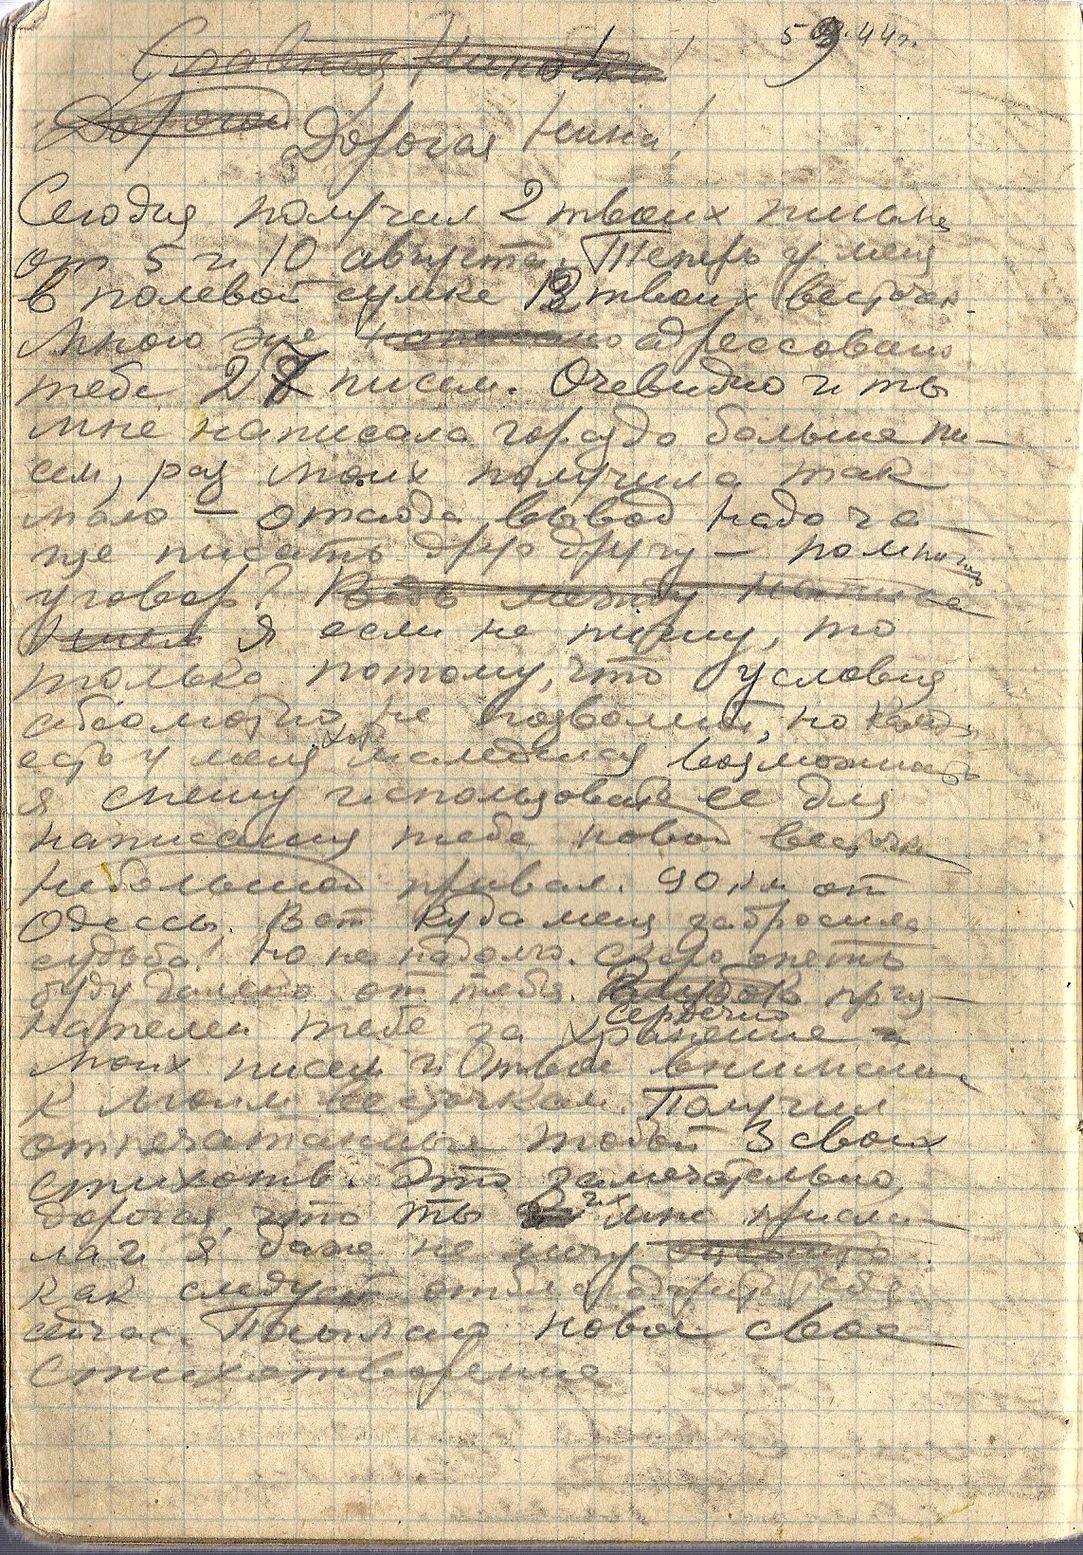 5 9.44г.
Славная Ниночка!
Дорогая Дорогая Нина!
Сегодня получил 2 твоих письма
от 5 и 10 августа. Теперь у меня
в полевой сумке 12 твоих весточек.
Мною же написано адрессовано
тебе 27 писем. Очевидно и ты
мне написала гораздо больше пи-
сем, раз моих получила так
мало – отсюда вывод надо ча-
ще писать друг другу – помнишь
уговор? Ведь между
Я если не пишу, то
только потому, что условия
абсолютно не позволяют, но когда
есть у меня хоть малейшая возможность
я спешу использовать ее для
написания тебе новой весточки
Небольшой привал. 90 км от
Одессы. Вот куда меня забросила
судьба! Но не надолго. Скоро опять
буду далеко от тебя. приз-
нателен тебе за сердечно хранение
моих писем и твое внимание
к моим весточкам. Получил
отпечатанные тобой 3 своих
стихотв. Это замечательно,
дорогая, что ты их мне присла-
ла и я даже не могу
как следует отблагодарить тебя
сейчас. Посылаю новое свое
стихотворение